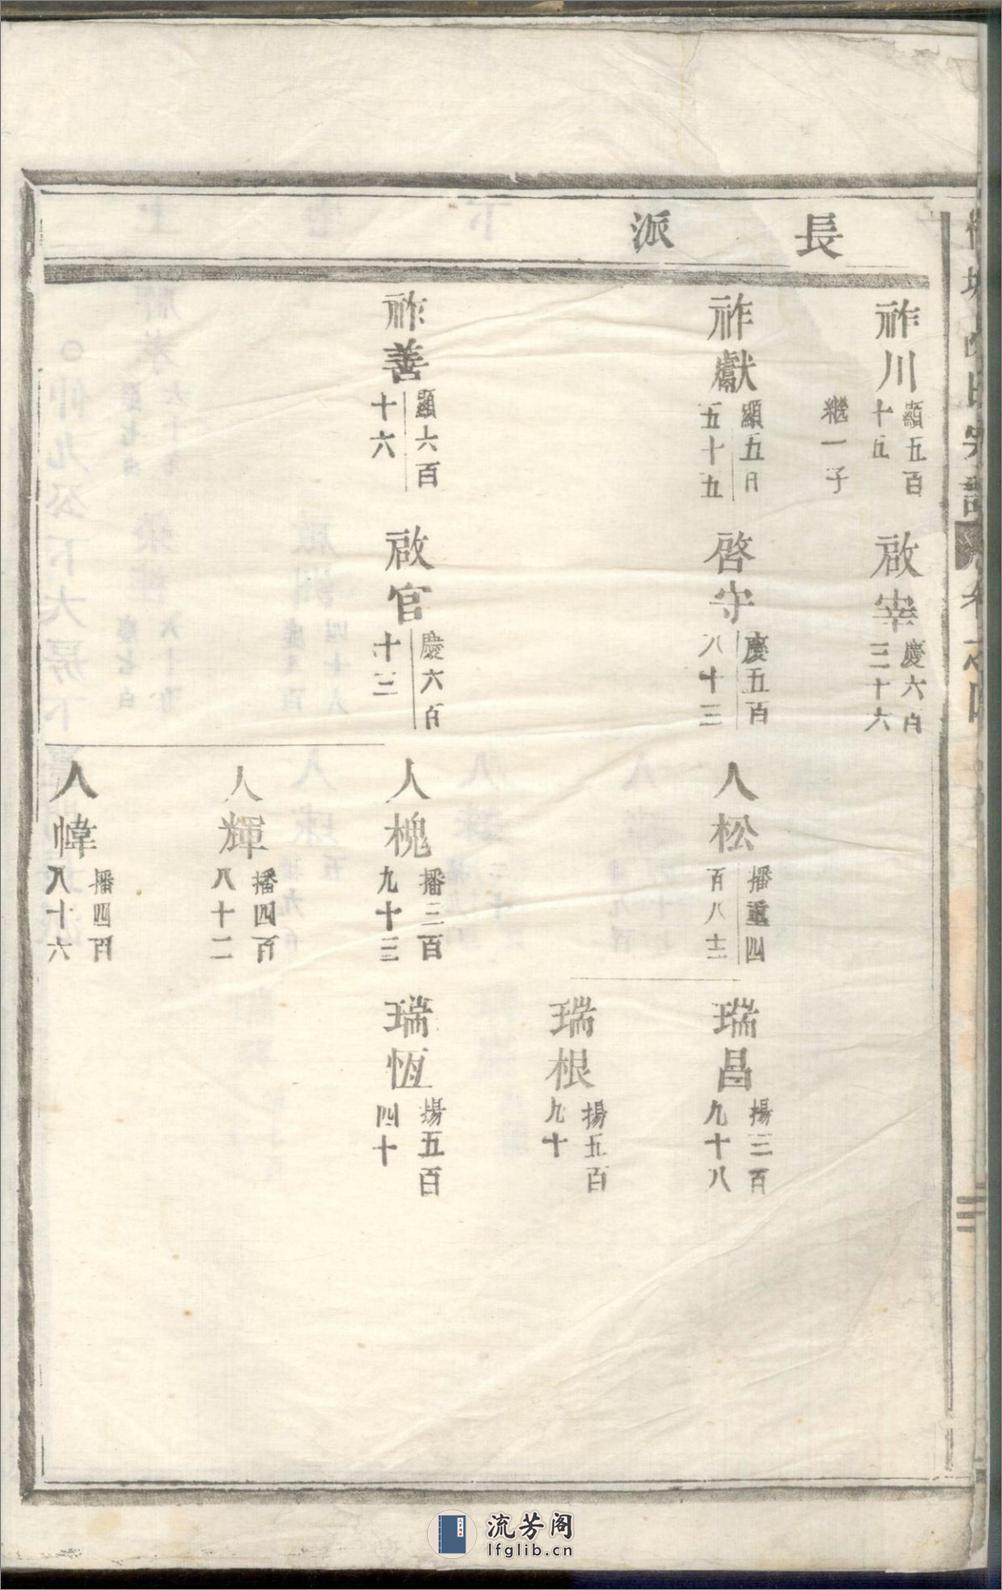 長派
祚川
顯五百
十五
繼一子
啟宰
慶六百
三十六
祚獻
顯五百
五十九
啓守
慶五百
八十三
人松
播重四
百八十二
瑞昌
揚三百
九十八
瑞根
揚五百
九十
祚善
顯六百
十六
啟官
慶六百
十三
人槐
播三百
九十三
瑞恆
揚五百
四十
人輝
播四百
八十二
人幃
播四百
八十六
流芳阁
lfglib.cn